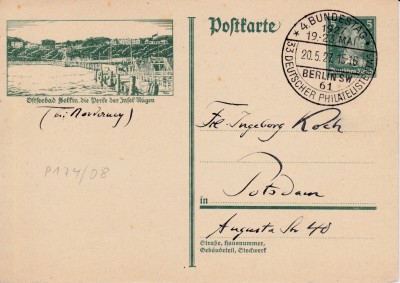 Postkarte
5
4. BUNDESTAG
192
19.-23. MAI
20.5.27. 15-16
BERLIN SW
61
33. DEUTSCHER PHILATELISTENTAG
Ostseebad Sellin, die Perle der Insel Rügen
(bei Norderney)
Frl. Ingeborg Koch
P174/08
in Potsdam
Augusta Str 40
Straße, Hausnummer,
Gebäudeteil, Stockwerk